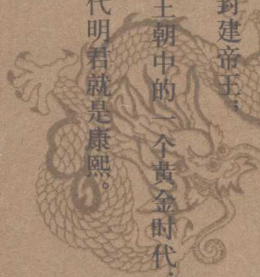 封建帝王；
王朝中的一个黄金时代，
代明君就是康熙。